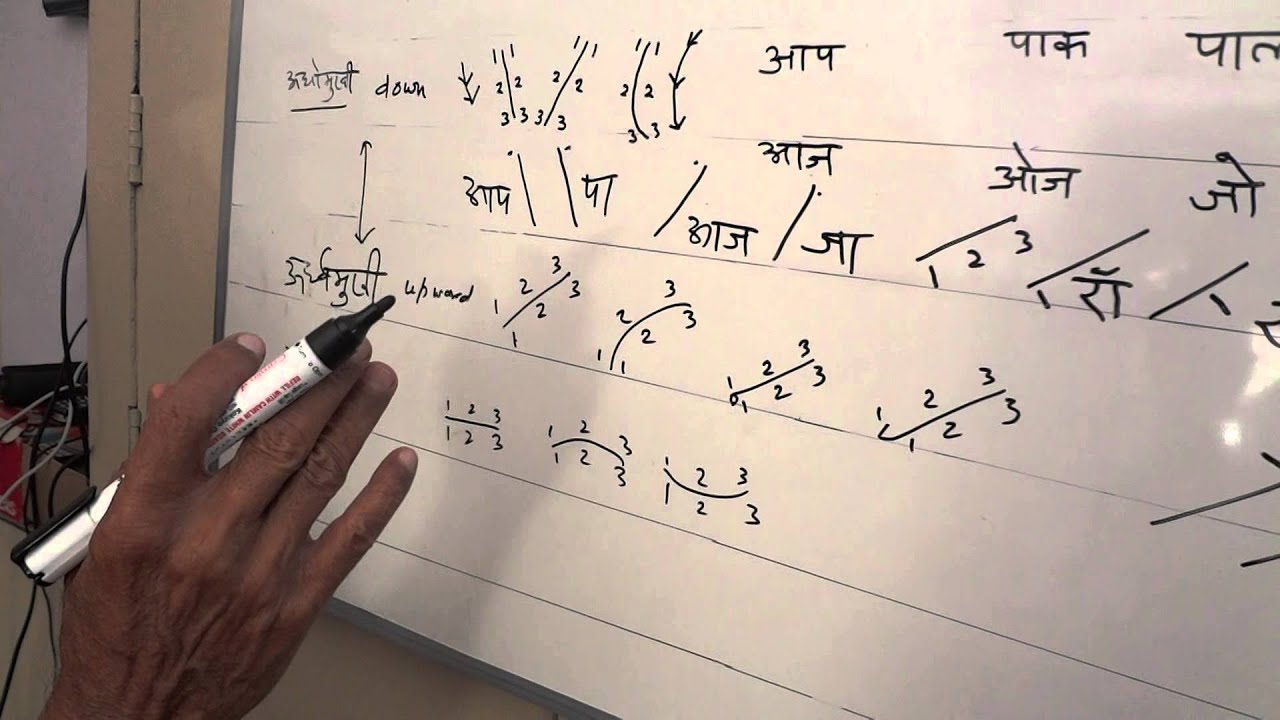 अधोमुखी down 1 1 2 2 3 3 1 1 2 2 3 3 1 1 2 2 3 3 आप पाक
आप पा आज जा आज ओज जो
1 2 3 1 रॉ 1
upward 1 2 3 1 2 3 1 2 3 1 2 3 1 2 3 1 2 3 1 2 3 1 2 3
1 2 3 1 2 3 1 2 3
1 2 3 1 2 3 1 2 3